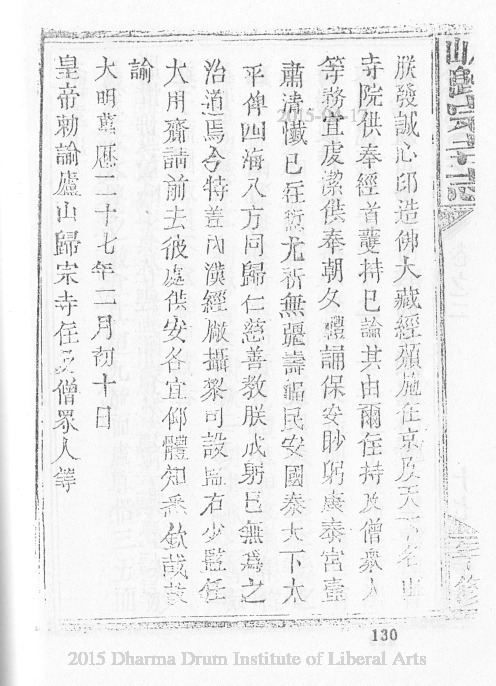 朕發誠心印造佛大藏經頒施在京及天下名山
寺院供奉經首護持已諭其由爾住持及僧衆人
等務宜虔潔供奉朝夕禮誦保安眇躬康泰宮壼
肅清懺已往愆尤祈無疆壽福民安國泰天下太
平俾四海八方同歸仁慈善教朕成躬已無爲之
治道焉今特差內漢經廠攝掌司設監右少監任
大用齎請前去彼處供安各宜仰體知悉欽哉故
諭
大明萬曆二十七年二月初十日
皇帝勅諭廬山歸宗寺住及僧衆人等
2015-04-17
130
2015 Dharma Drum Institute of Liberal Arts